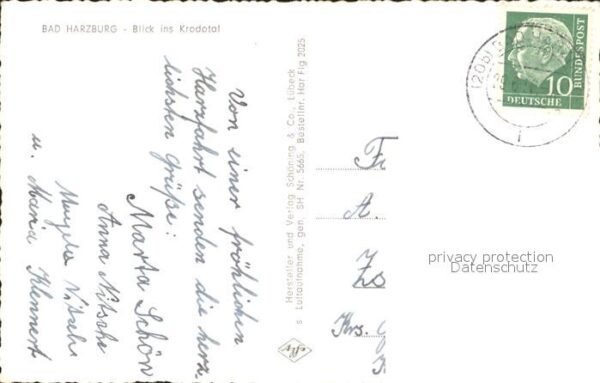 BAD HARZBURG - Blick ins Krodotal
Von einer fröhlichen
Harzfahrt senden die herz-
lichsten Grüße:
Marta Schön
Anna Nitsche
u. Maria Klennert
Hersteller und Verlag Schöning & Co., Lübeck
s Luftaufnahme, gen. SH Nr. 5665, Bestellnr. Har Flg 2025
10
DEUTSCHE
BUNDESPOST
(20b)
Fr
A.
Krs.
privacy protection
Datenschutz